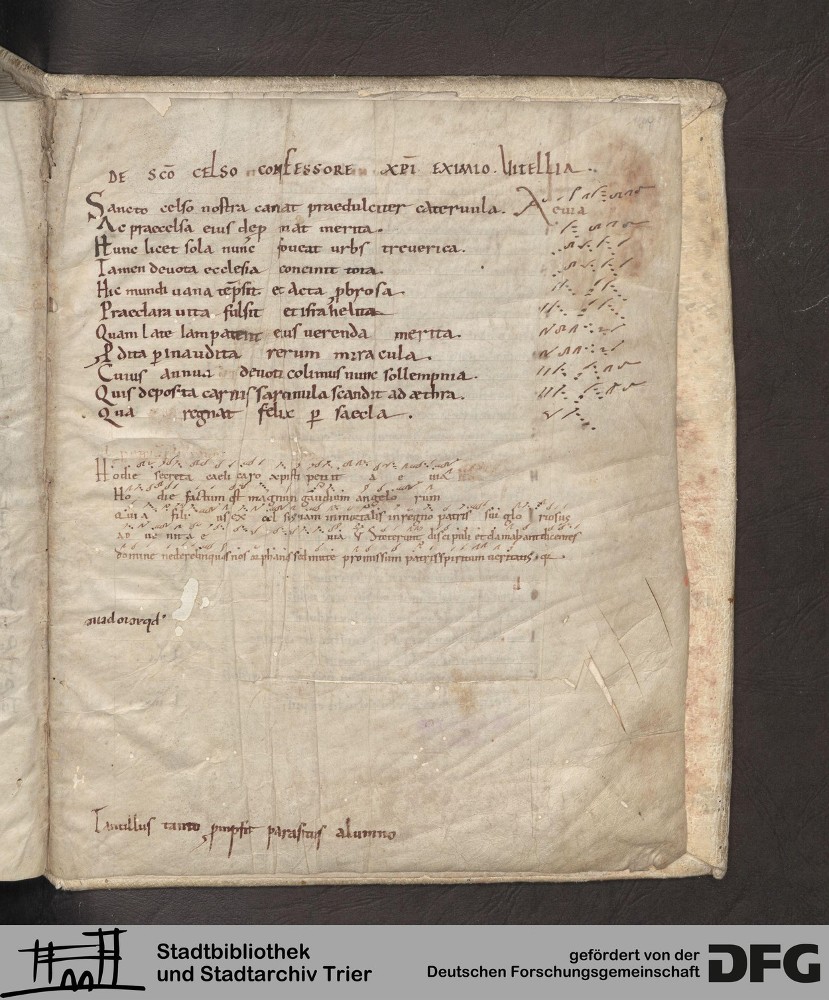 DE SCO CELSO CONFESSORE XPI EXIMIO. VITELLIA.
Sancto celso nostra canat praedulciter caterula. Aeuia
Ac praecelsa eius dep mat merita.
Hunc licet sola nunc foueat urbs treuerica.
Tamen deuota ecclesia concinit tota.
Hic mundi uana tepsit et acta pbrosa
Praeclara uita fulsit et
Quam late lam patent eius uerenda merita.
pinaudita rerum miracula.
Cuius annua deuoti colimus nunc sollempnia.
Quis deposita carnis sarcinula scandit ad aethra.
Qua regnat felix p saecla.
Hodie secreta caeli caro xpisti petiit a e uia
Ho die factum est magnum gaudium angelo rum
Quia fili us ex cel sus iam inmortalis in regno patris sui glo riosus
ad ue nit a e uia V Steterunt discipuli et clamabant dicentes
domine ne derelinquas nos orphanos sed mitte promissum patris spiritum ueritatis
Tantillus tanto parasitus alumno
Stadtbibliothek
und Stadtarchiv Trier
gefördert von der
Deutschen Forschungsgemeinschaft
DFG